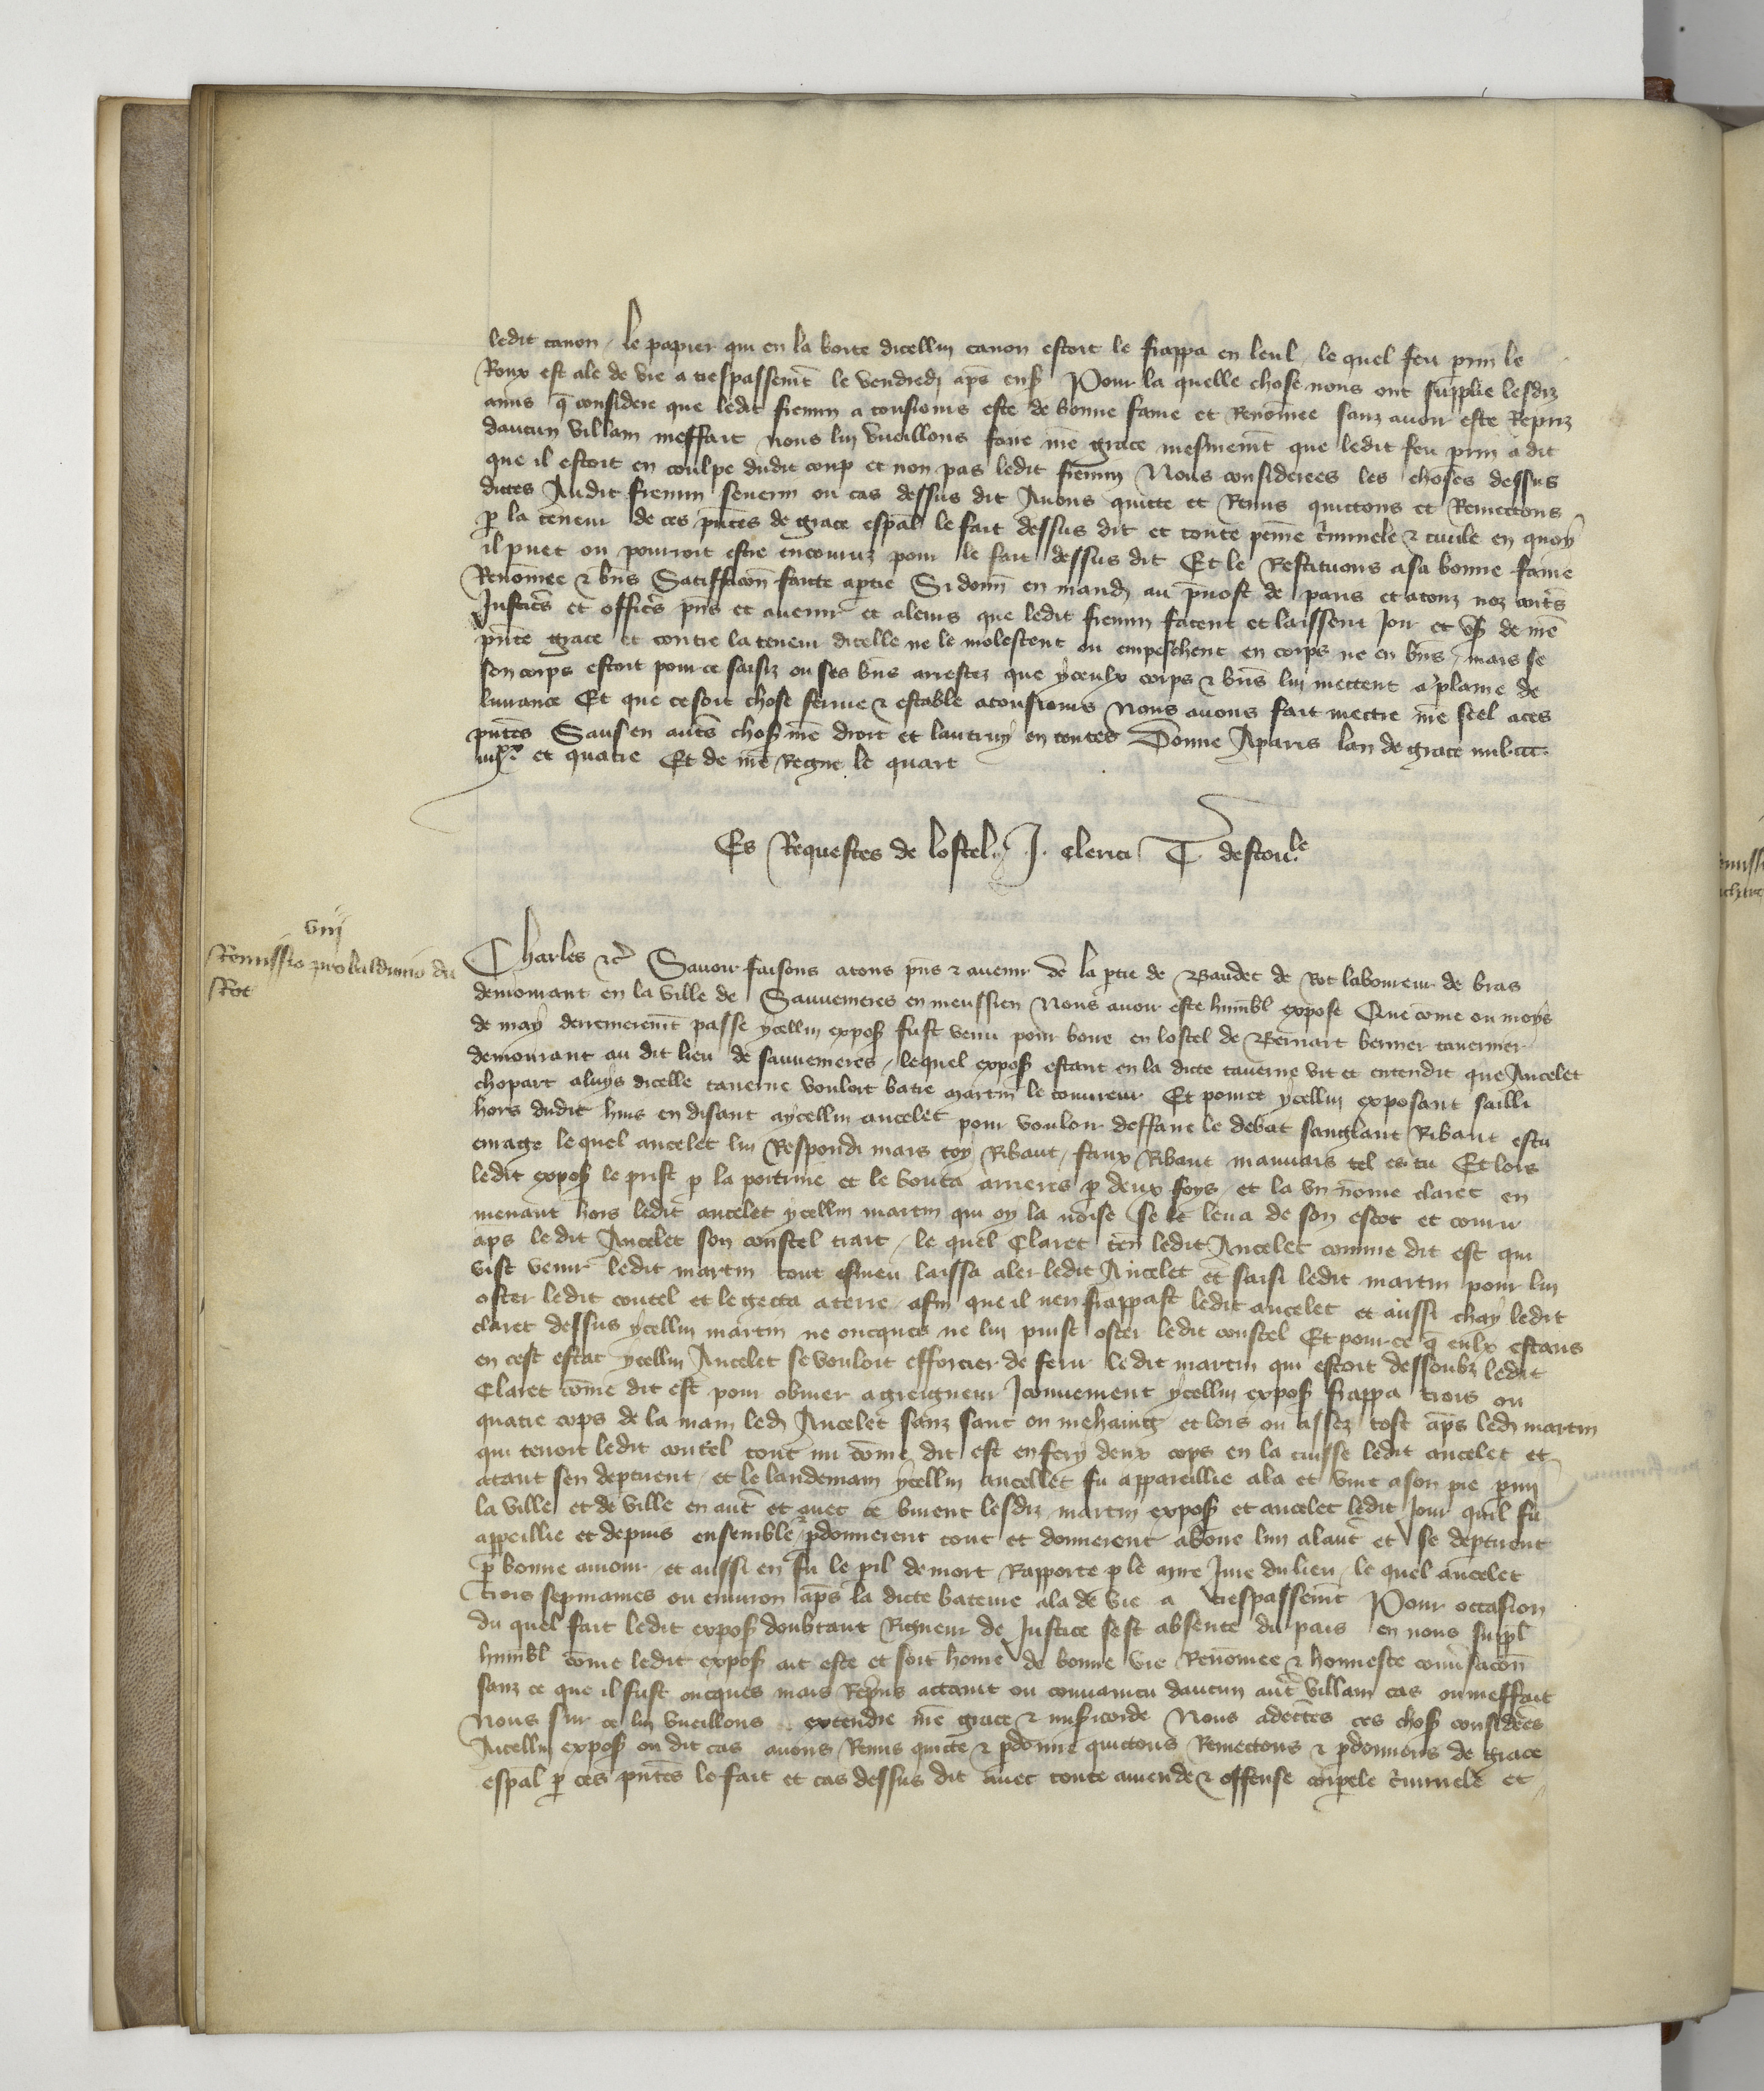 ledit canon, le papier qui en la boite dicellui canon estoit le frappa en leul, le quel feu prin le
Roux est ale de vie a trespassemt le vendredi aps ens Pour la quelle chose nous ont supplie lesdiz
amis q considere que ledit fremin a tousiours este de bonne fame et Renomee sanz avoir este Repriz
daucun villain meffait nous lui vueillons faire nre grace mesmemt que ledit feu prin a dit
que il estoit en coulpe dudit coup et non pas ledit fremin Nous considerees les choses dessus
dictes Audit fremin seuerin ou cas dessus dit Avons quitte et Remis quittons et Remettons
p la teneur de ces pntes de grace espal le fait dessus dit et toute peine crminele & civile en quoy
il puet ou pourroit estre encouruz pour le fait dessus dit Et le Restituons a sa bonne fame
Renomee & bns Satiffacon faicte aptie Si donn en mand au pvost de paris et atouz noz autrs
Justicrs et officrs pns et avenir et aleurs que ledit fremin facent et laissent Joir et us de nre
pnte grace et contre la teneur dicelle ne le molestent ou empeschent en corps ne en bns, mais se
son corps estoit pour ce saisiz ou ses bns arrestez que yceulx corps & bns lui mettent a plaine de
livrance Et que ce soit chose ferme & estable atousiours Nous avons fait mettre nre scel aces
pntes Sauf en autrs chos nre droit et lautruy en toutes Donne Aparis lan de grace mil.ccc.
iiijxx et quatre Et de nre Regne le quart
Es Requestes de lostel J. Clerici T. destoule
viij
Remissio pro balduino du
Rot
Charles &c Savoir faisons atous pns & avenir de la ptie de Baudet de Rot laboureur de bras
demourant en la ville de Sauvemeres en meussien Nous avoir este humbl expose Que come ou moys
de may derrenieremt passe ycellui expos fust venu pour boire en lostel de Bernart bernier tavernier
demourant au dit lieu de sauvemeres, lequel expos estant en la dicte taverne vit et entendit que Ancelet
chopart aluys dicelle taverne vouloit batre martin le couvreur Et pour ce ycellui exposant sailli
hors dudit huis en disant aycellui ancelet pour vouloir deffaire le debat sanglant Ribaut es tu
enrage le quel ancelet lui Respondi mais toy Ribaut, faux Ribaut mauvais tel es tu Et lors
ledit expos le prist p la poitrine et le bouta arrieres p deux foys, et la un nome claret en
menant hors ledit ancelet ycellui martin qui oy la noise se leva de son escot et couru
aps le dit Ancelet son coustel trait, le quel Claret ten ledit Ancelet comme dit est qui
vist venir ledit martin tout esmeu laissa aler ledit Ancelet et saisi ledit martin pour lui
oster ledit coutel et le gecta aterre, afin que il nen frappast ledit ancelet et aussi chay ledit
claret dessus ycellui martin ne oncques ne lui puist oster ledit coustel Et pour ce q eulx estans
en cest estat ycellui Ancelet se vouloit efforcier de ferir le dit martin qui estoit dessoubz ledit
Claret come dit est pour obvier agreigneur Jconvenient ycellui expos frappa trois ou
quatre cops de la main led Ancelet sanz sanc ou mehaing et lors ou assez tost aps led martin
qui tenoit ledit coutel tout nu come dit est en fery deux cops en la cuisse ledit ancelet et
atant sen deptirent, et le landemain ycellui ancellet fu appareillie ala et vint a son pie pmi
la ville et de ville en autre et avec ce burent lesdiz martin expos et ancelet ledit Jour quil fu
appeillie et depuis ensemble & pdonnerent tout et donnerent aboire lun alautre et se deptirent
p bonne amour et aussi en fu le pil de mort Rapporte p le mire Jure du lieu, le quel ancelet
trois sepmaines ou environ aps la dicte bateure ala de vie a trespassemt Pour occasion
du quel fait ledit expos doubtant Rigueur de Justice sest absente du pais en nous suppl
humbl come ledit expos ait este et soit home de bonne vie Renomee & honneste convsacon
sanz ce que il fust oncques mais Repris attaint ou convaincu daucun autre villain cas ou meffait
Nous sur ce lui vueillons extendre nre grace & misicorde Nous adectes ces chos considerees
Aicellui expos ou dit cas avons Remis quicte & pdonne quictons Remectons & pdonnons de grace
espal p ces pntes le fait et cas dessus dit avec toute amende & offense corpele crminele et